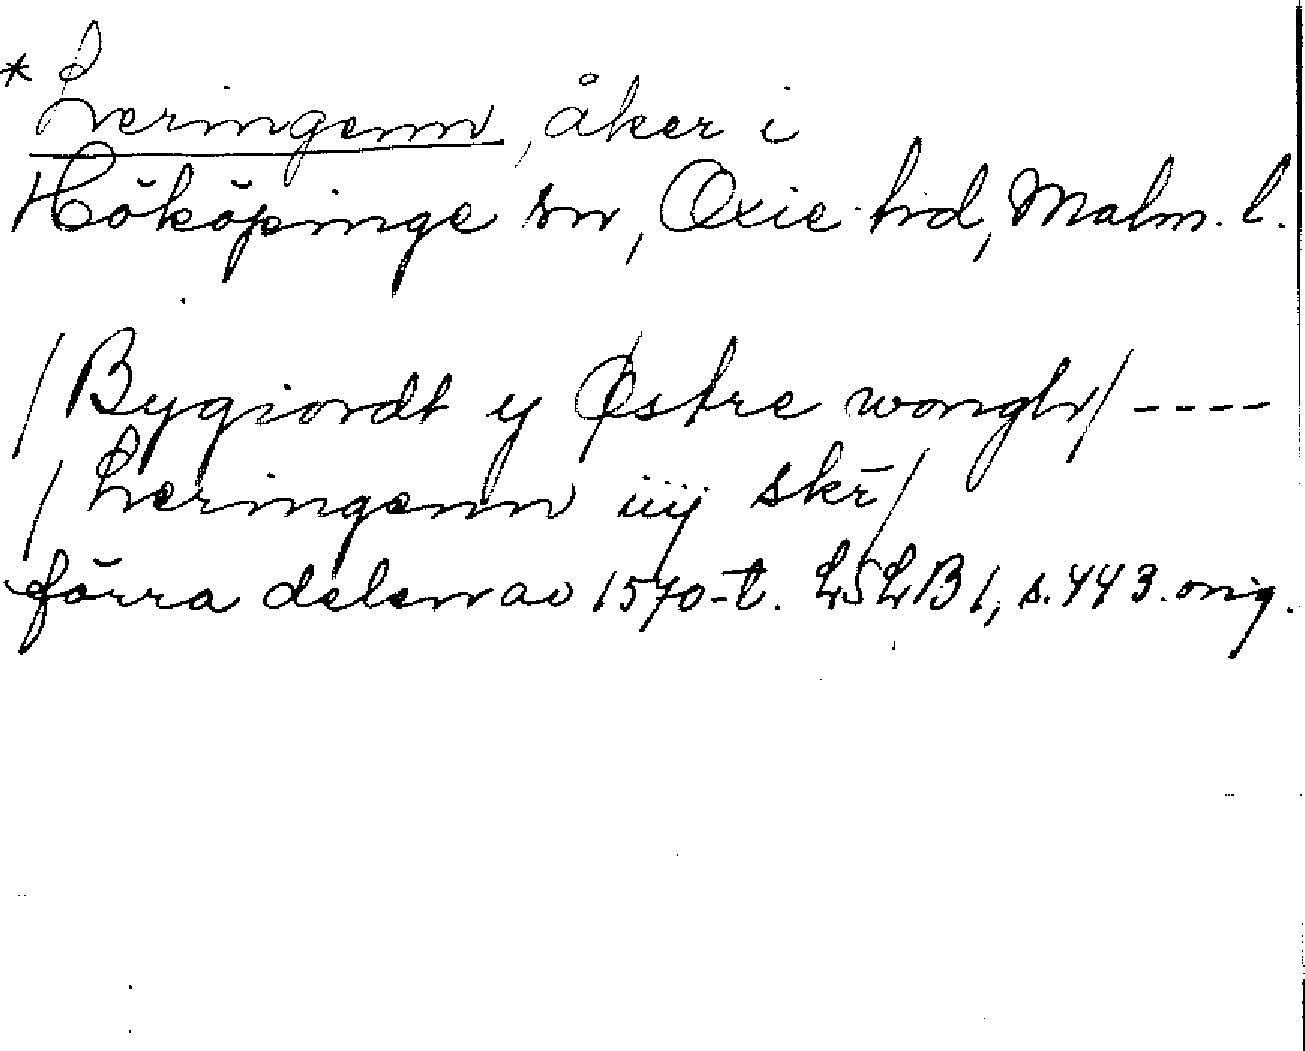 * Lveringenn, åker i
Hököpinge sn, Oxie hd, Malm. l.
/Bygiordt y Østre wongh/ ----
/Lveringenn iiij skr̄/
förra delen av 1570-t. LSLB 1, s. 443. orig.